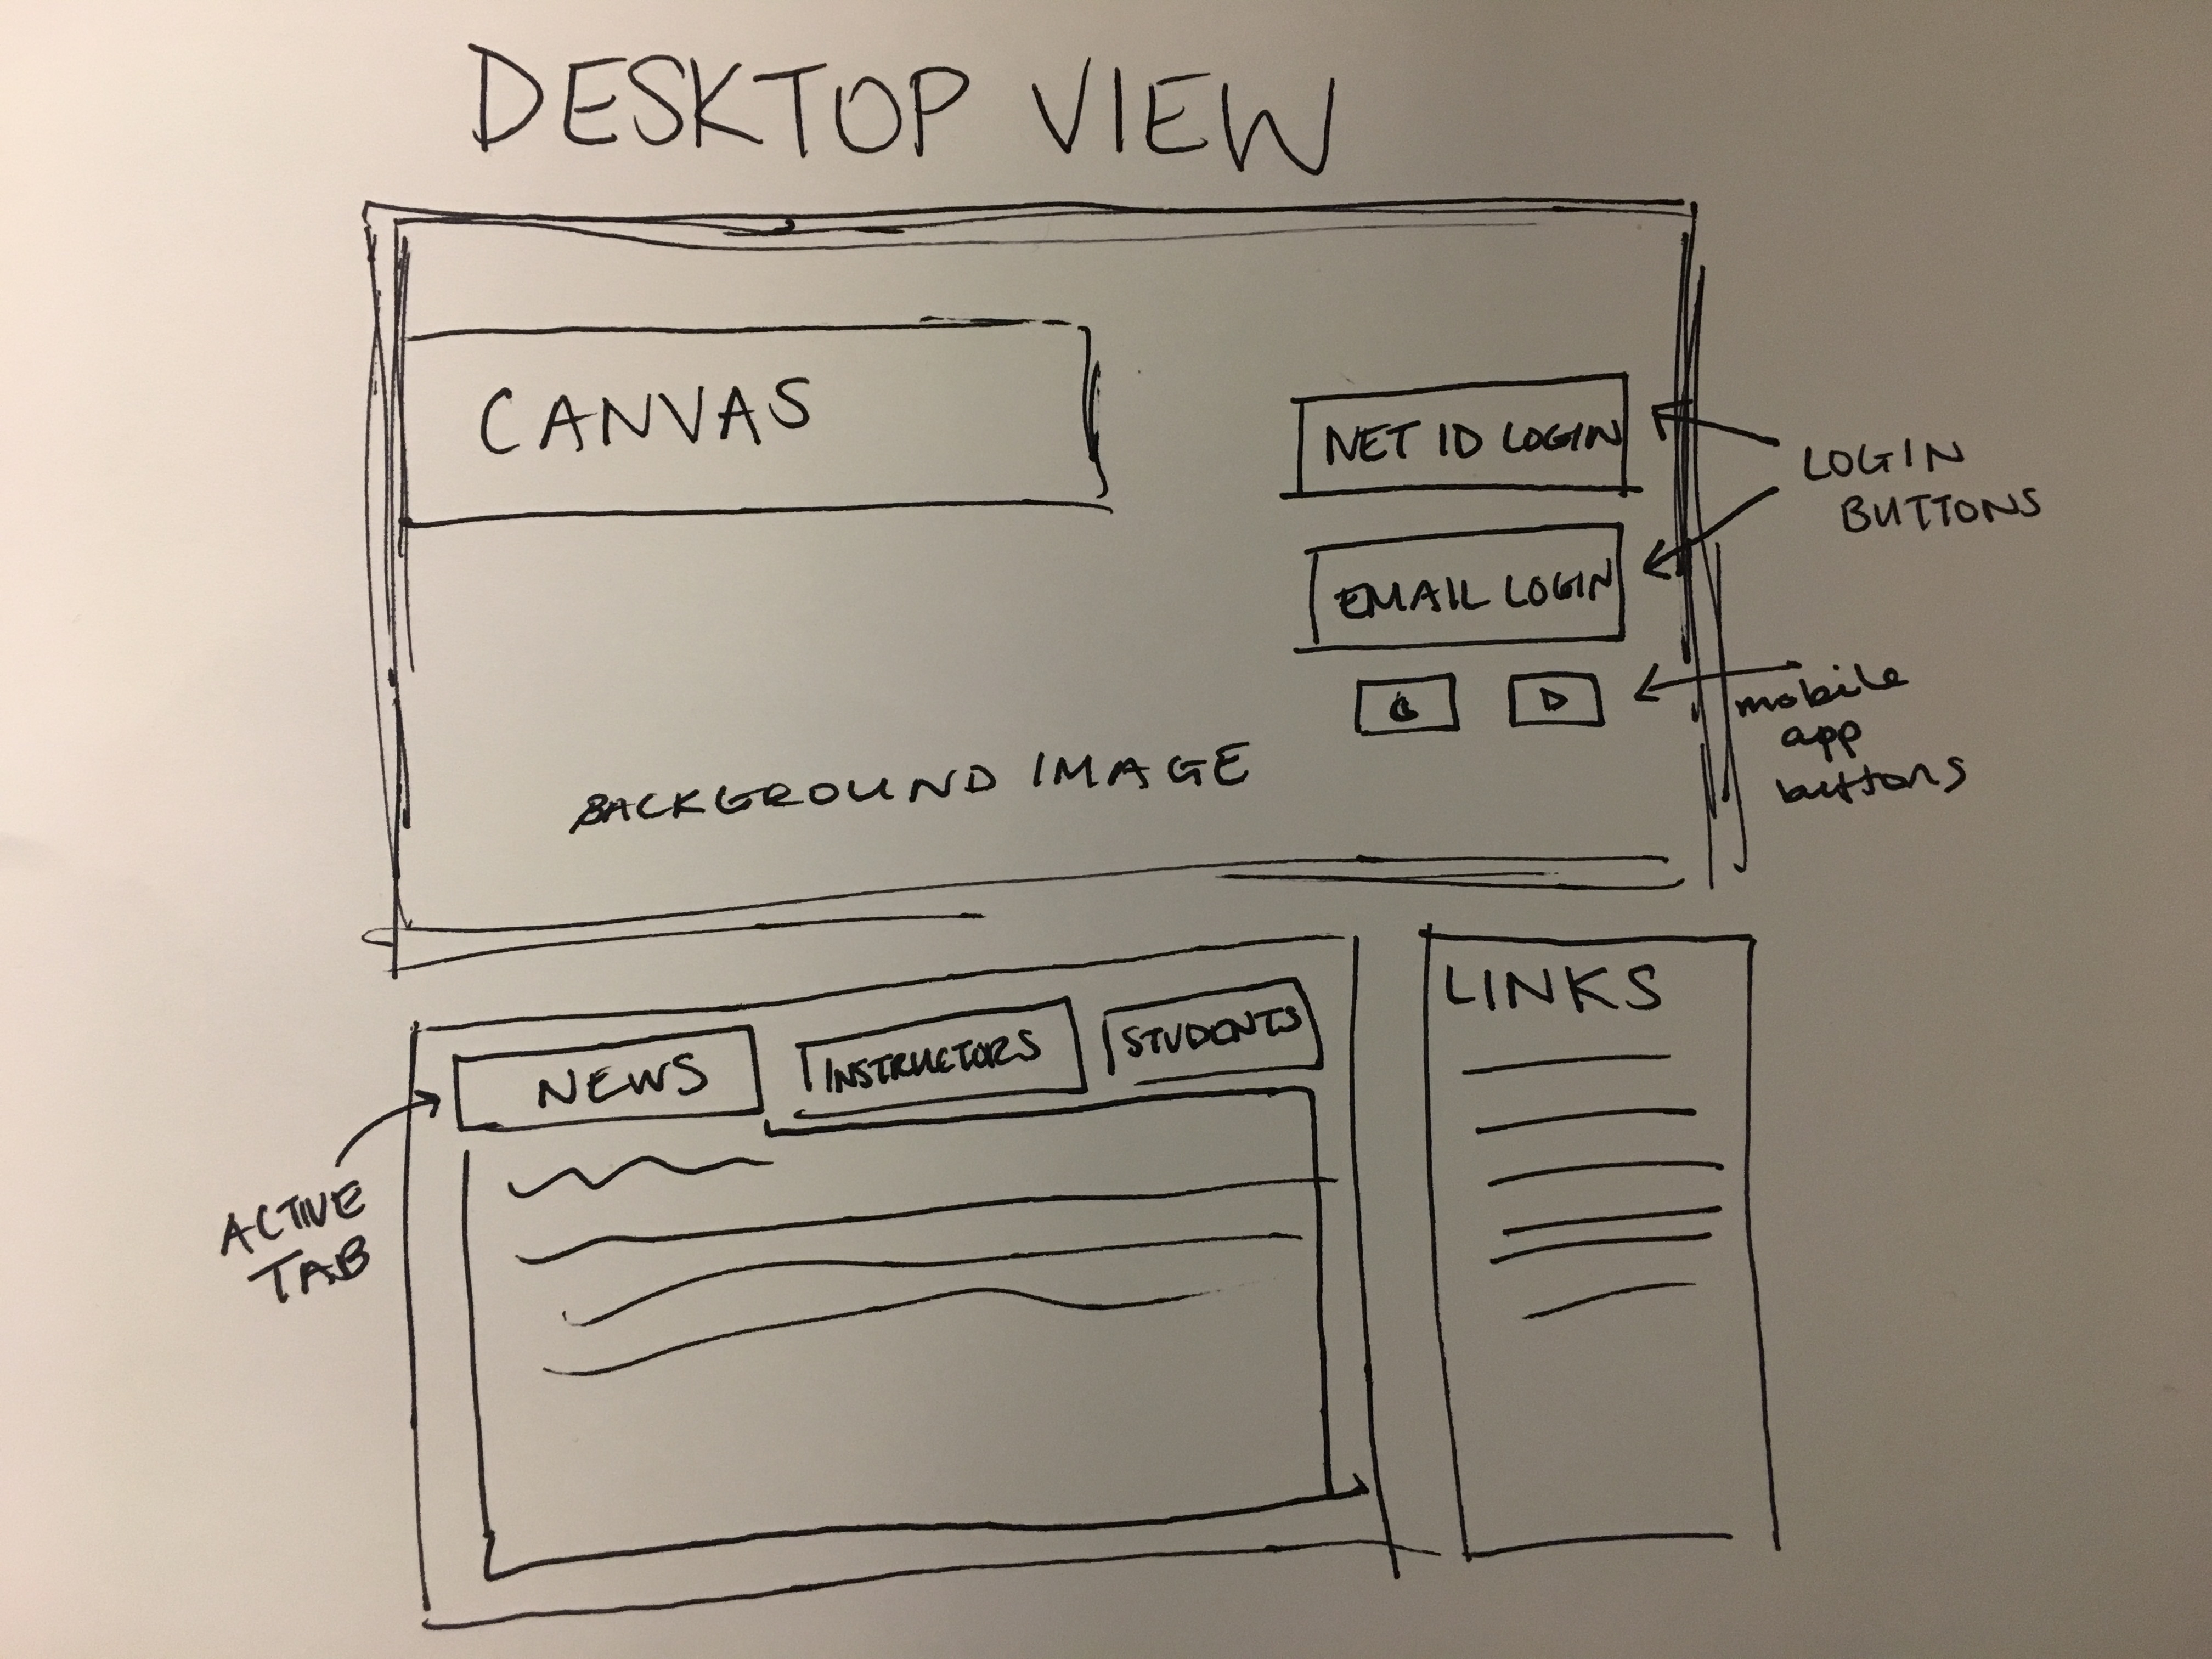 DESKTOP VIEW
CANVAS
NET ID LOGIN
EMAIL LOGIN
LOGIN
BUTTONS
mobile
app
buttons
BACKGROUND IMAGE
NEWS
INSTRUCTORS
STUDENTS
LINKS
ACTIVE
TAB